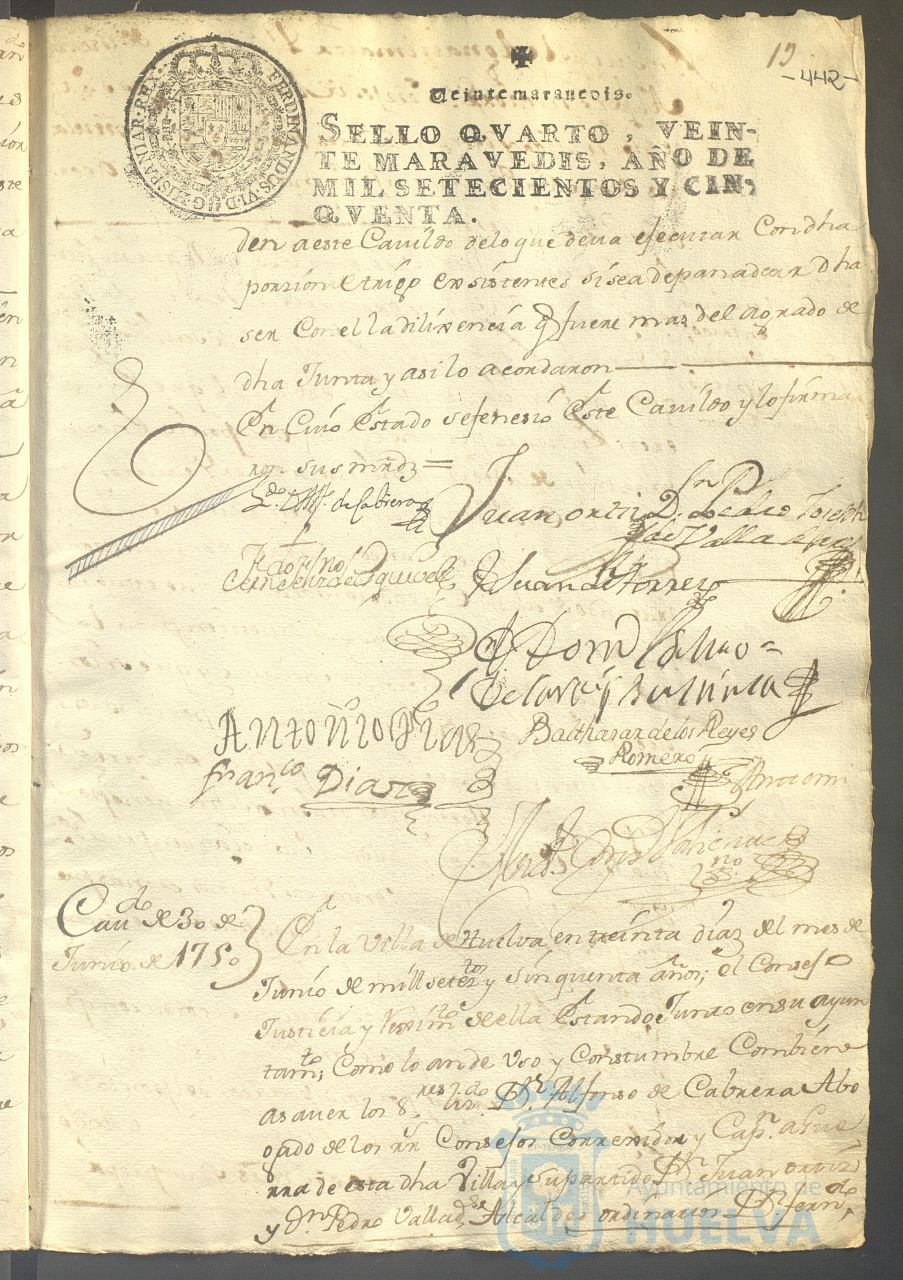 19
-442-
Veinte maravedis.
SELLO QVARTO, VEIN-
TE MARAVEDIS, AÑO DE
MIL SETECIENTOS Y CIN-
QVENTA.
FERDINANDUS VI D G HISPANIAR REX
den a este Cavildo delo que deva ejecutar Con dha
porzion trigo si sea de panadear dha
ser Con el la dilixencia q fuere mas del agrado de
dha Junta y asi lo acordaron
En Cuio Estado se fenesió Este Cavildo y lo firma
ron sus mrdz =
de Cabrera
Juan orti Dn Pedro Joseph
de Valla
Juan de torres
Dom
Antonio
Balthasar de los Reyes
Romero
Franco Dias
Cavdo de 30 de
Junio de 1750
En la Villa de Huelva en treinta dias del mes de
Junio de mill setezos y sinquenta años; el Consejo
Justicia y Reximto de ella Estando Junto en su ayun
tamto, Como lo an de Vso y Constumbre Combiene
a saver los Sres Lizdo Dn Alfonso de Cabrera Abo
gado de los rr Consejos Correxidor y Capn a Gue
rra de esta dha Villa y su partido Dn Juan ortiz
y Dn Pedro Vallads Alcaldes ordinarios Dn ferndo
Ayuntamiento de
HUELVA